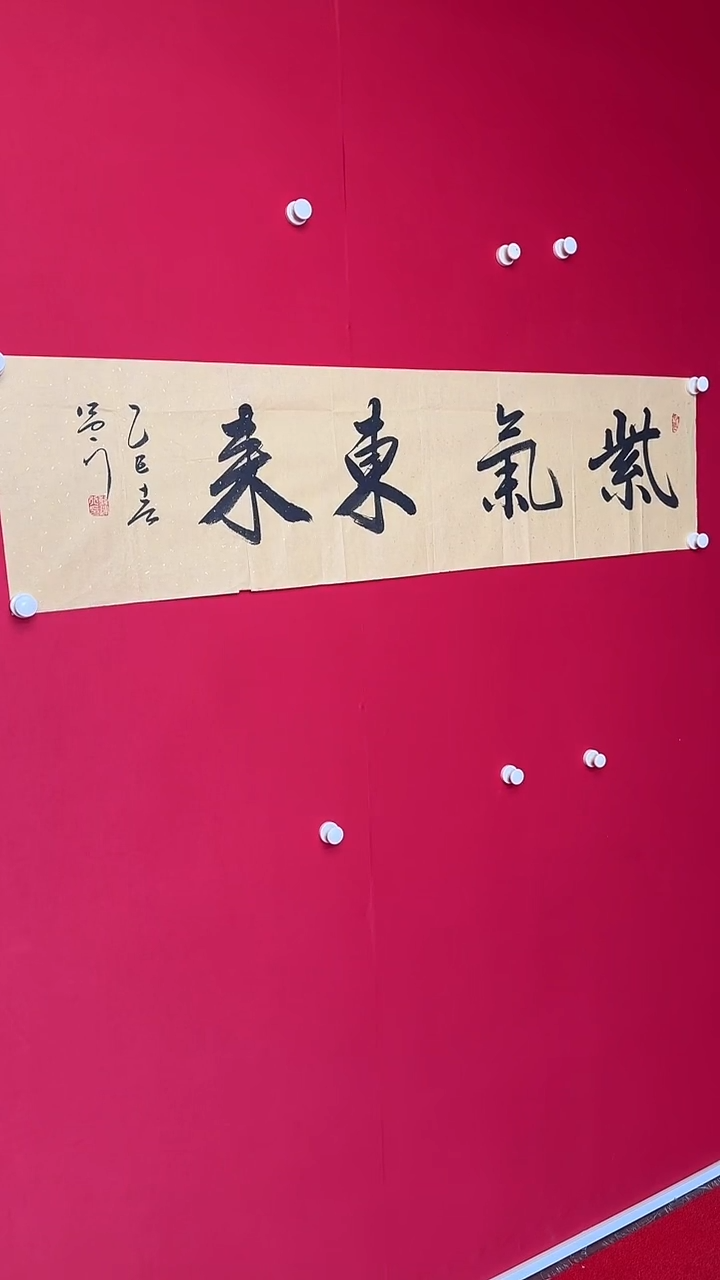 紫氣東来
乙巳春